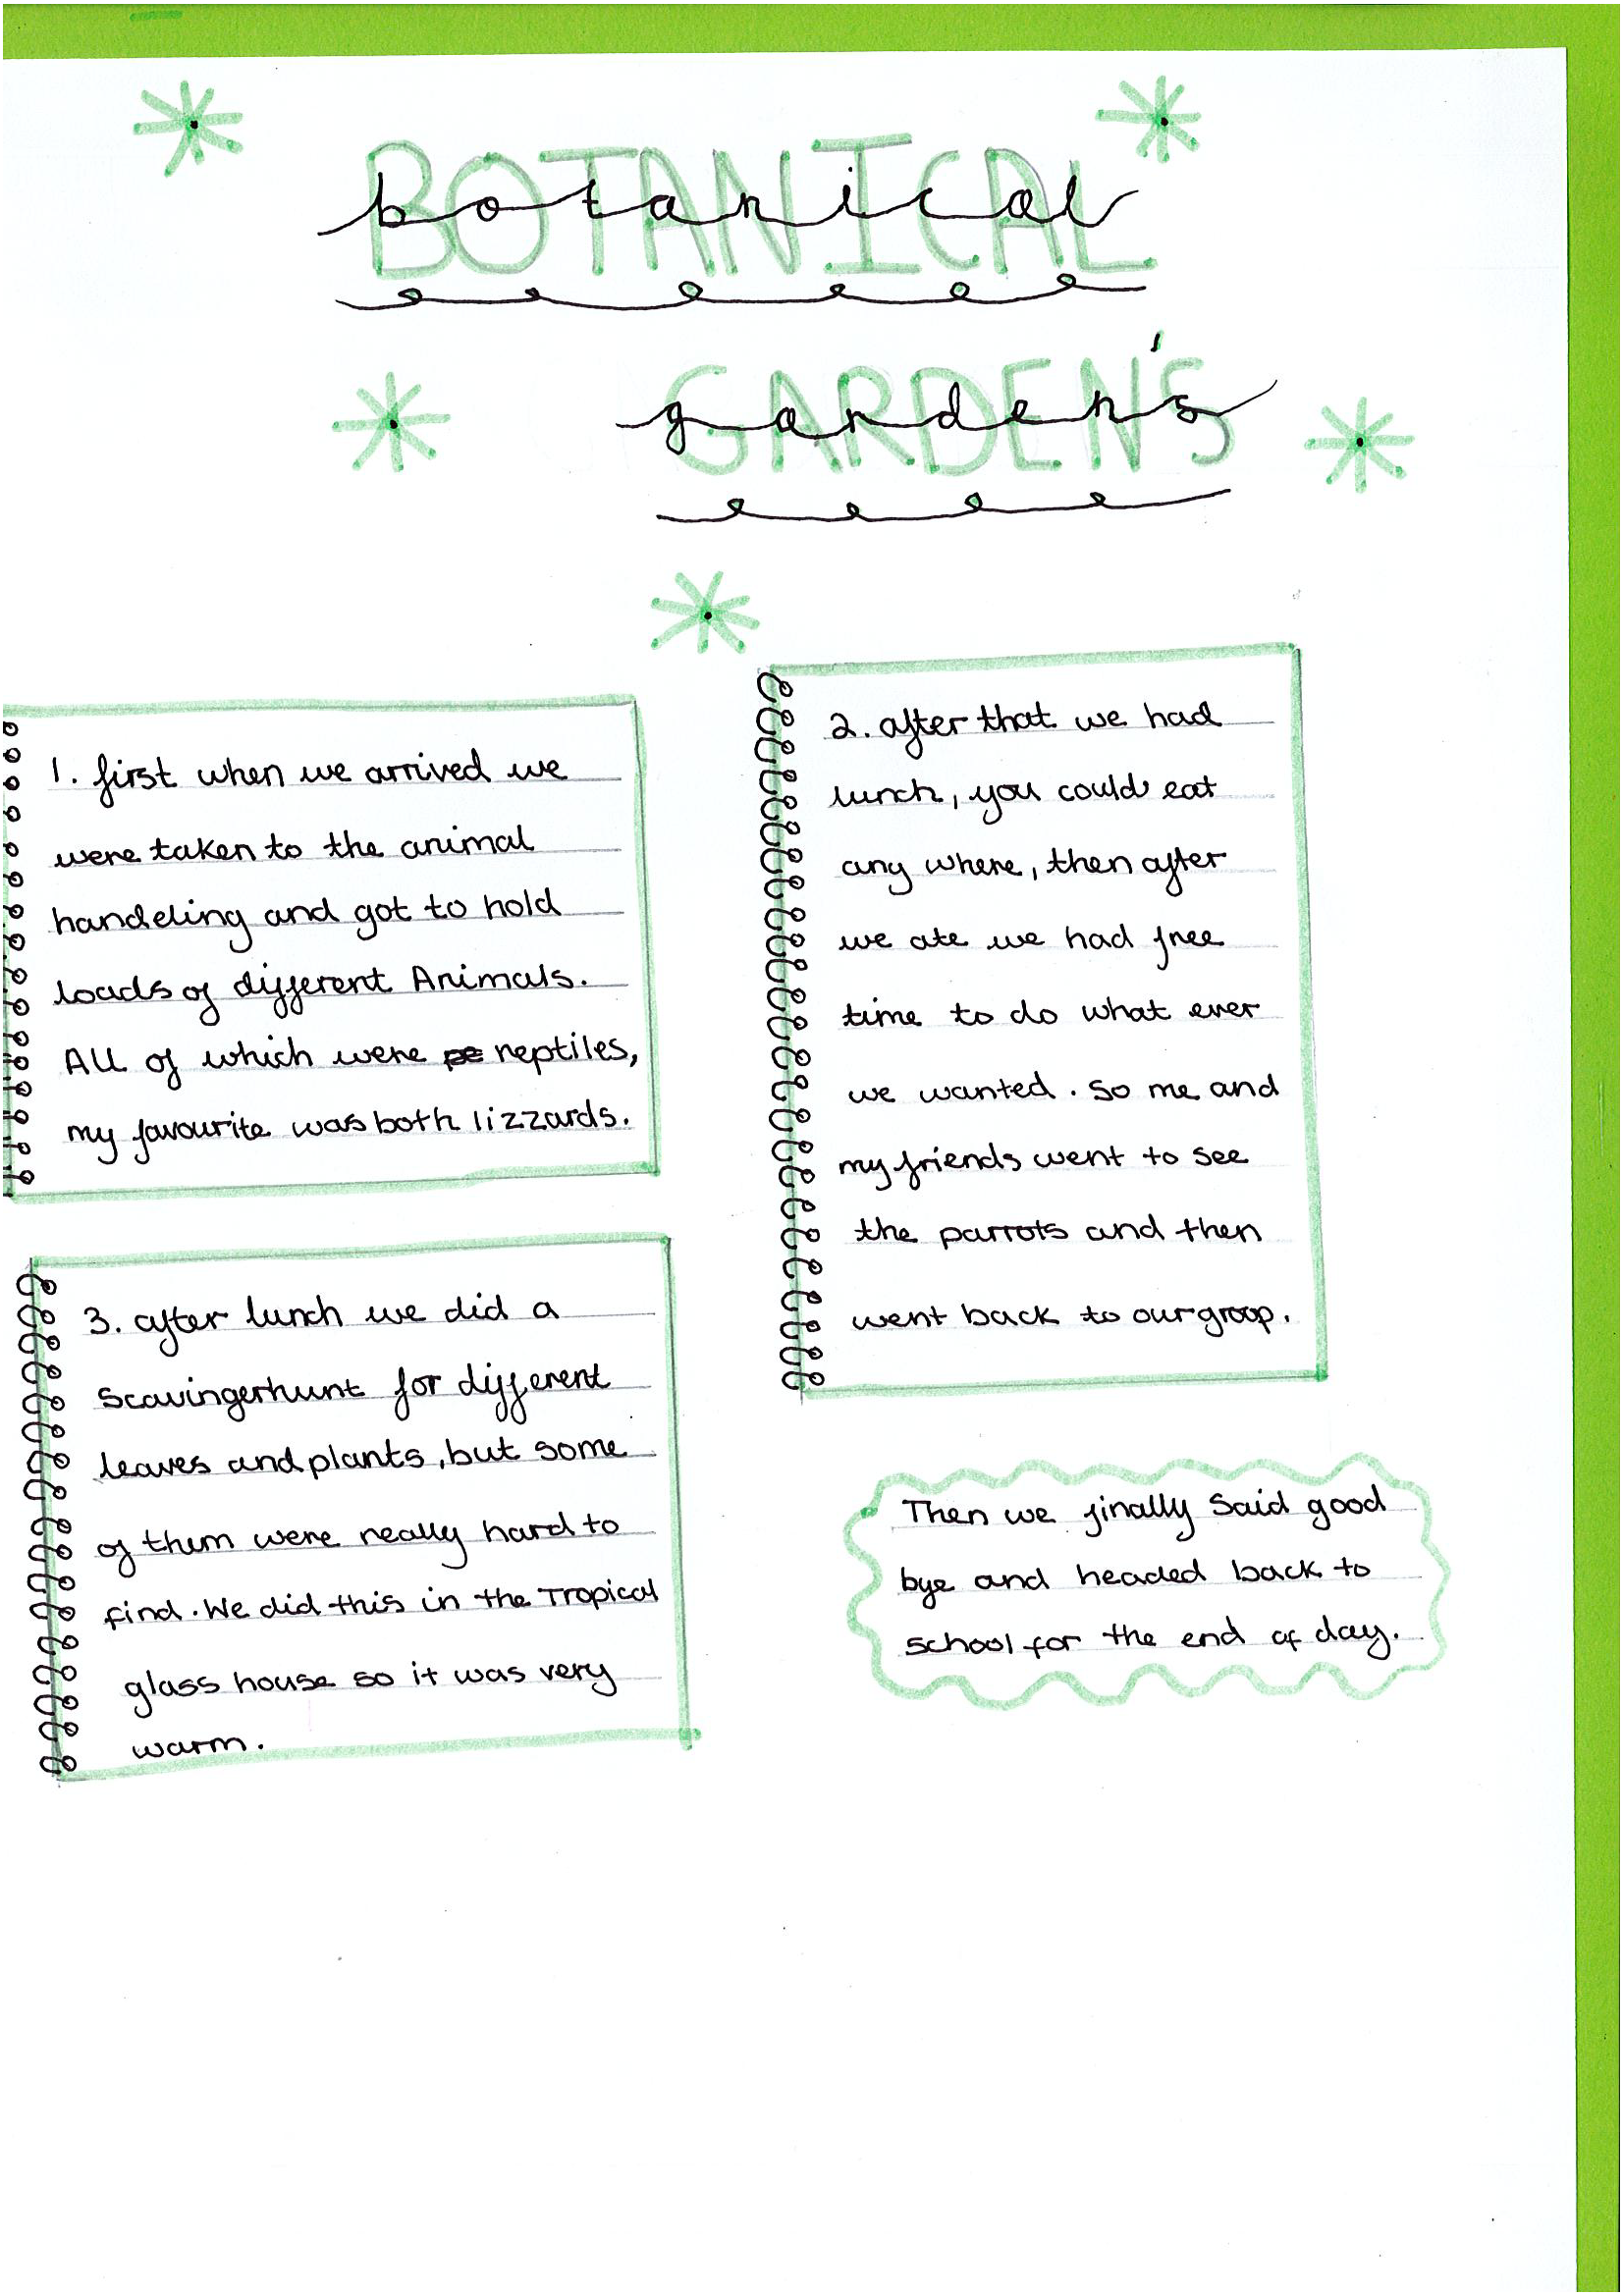 BOTANICAL
botanical
GARDEN'S
garden's
1. first when we arrived we
were taken to the animal
handeling and got to hold
loads of different Animals.
All of which were pe reptiles,
my favourite was both lizzards.
2. after that we had
lunch, you could eat
any where, then after
we ate we had free
time to do what ever
we wanted. So me and
my friends went to see
the parrots and then
went back to our groop.
3. after lunch we did a
scavingerhunt for different
leaves and plants, but some
of them were really hard to
find. We did this in the Tropical
glass house so it was very
warm.
Then we finally said good
bye and headed back to
school for the end of day.